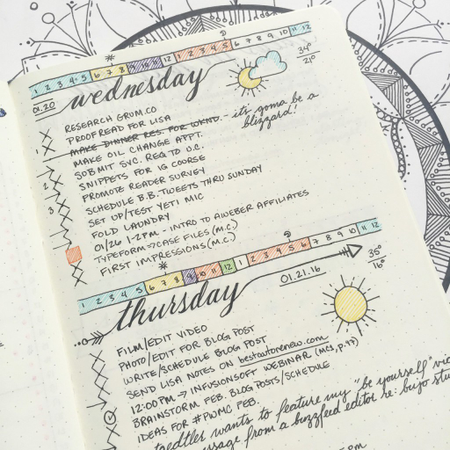 1 2 3 4 5 6 7 8 9 10 11 12 1 2 3 4 5 6 7 8 9 10 11 12
01.20 wednesday
34°
21°
RESEARCH GRUM.CO
PROOFREAD FOR LISA
MAKE DINNER RES. FOR WKND. - it's gonna be a blizzard!
MAKE OIL CHANGE APPT.
SUBMIT SVC. REQ TO U.C.
SNIPPETS FOR IG COURSE
PROMOTE READER SURVEY
SCHEDULE B.B. TWEETS THRU SUNDAY
SET UP/TEST YETI MIC
FOLD LAUNDRY
01/26 1-2PM - INTRO TO AWEBER AFFILIATES
TYPEFORM → CASE FILES (M.C.)
FIRST IMPRESSIONS (M.C.)
1 2 3 4 5 6 7 8 9 10 11 12 1 2 3 4 5 6 7 8 9 10 11 12
thursday 01.21.16
35°
16°
FILM/EDIT VIDEO
PHOTO/EDIT FOR BLOG POST
WRITE/SCHEDULE BLOG POST
SEND LISA NOTES ON bestautorenew.com
12:00PM → INFUSIONSOFT WEBINAR (MCS, p.97)
BRAINSTORM FEB. BLOG POSTS/SCHEDULE
IDEAS FOR #PWMC FEB.
wants to feature my "be yourself"
from a buzzfeed editor re: bujo
pm